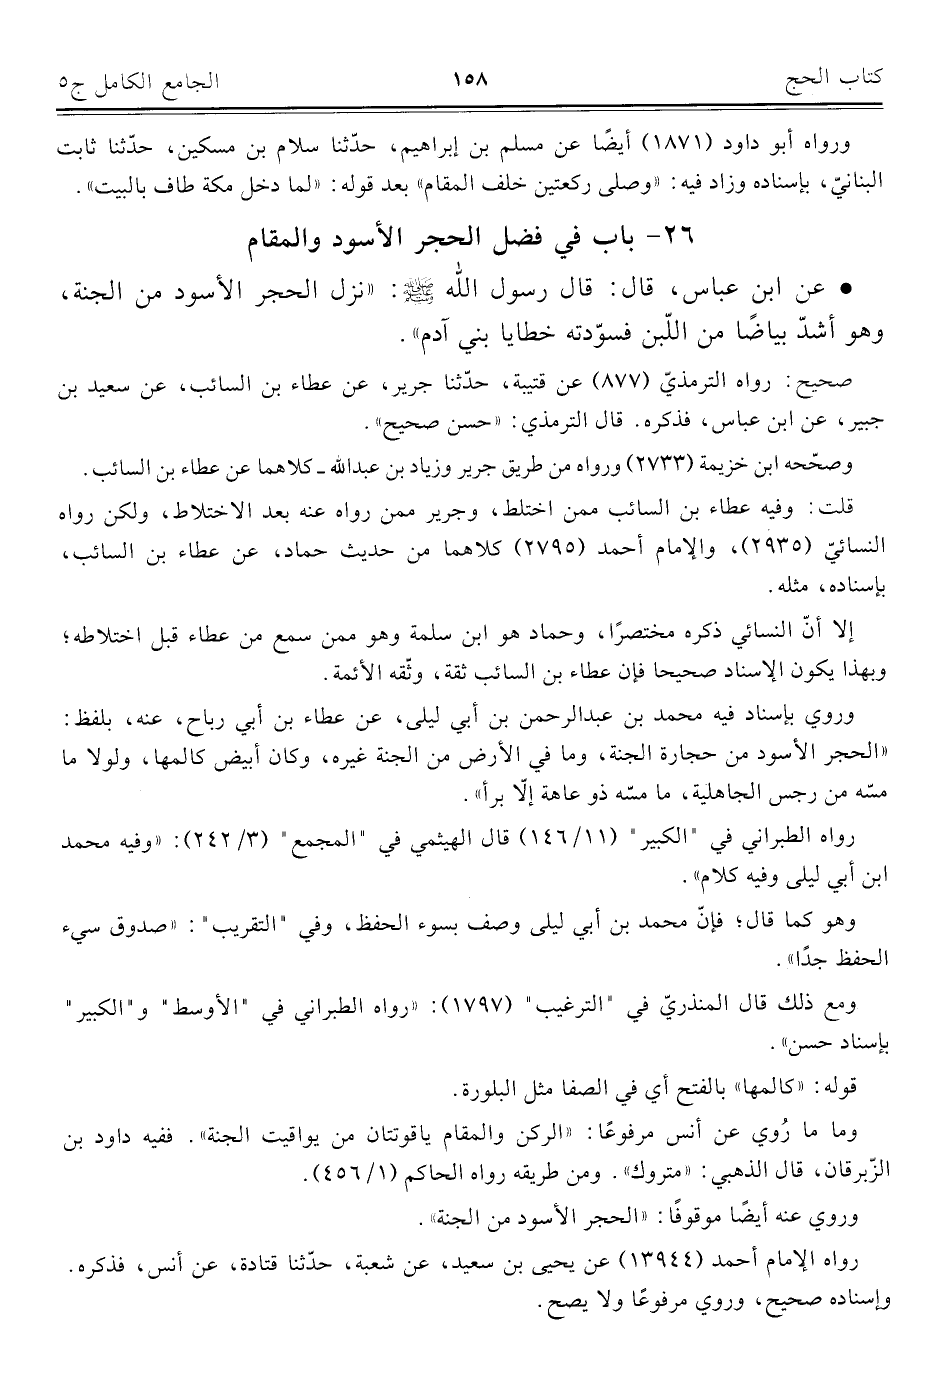 كتاب الحج ١٥٨ الجامع الكامل ج٥
ورواه أبو داود (١٨٧١) أيضًا عن مسلم بن إبراهيم، حدّثنا سلام بن مسكين، حدّثنا ثابت
البنانيّ، بإسناده وزاد فيه: «وصلى ركعتين خلف المقام» بعد قوله: «لما دخل مكة طاف بالبيت».
٢٦- باب في فضل الحجر الأسود والمقام
• عن ابن عباس، قال: قال رسول الله ﷺ: «نزل الحجر الأسود من الجنة،
وهو أشدّ بياضًا من اللّبن فسوّدته خطايا بني آدم».
صحيح: رواه الترمذيّ (٨٧٧) عن قتيبة، حدّثنا جرير، عن عطاء بن السائب، عن سعيد بن
جبير، عن ابن عباس، فذكره. قال الترمذي: «حسن صحيح».
وصحّحه ابن خزيمة (٢٧٣٣) ورواه من طريق جرير وزياد بن عبدالله ـ كلاهما عن عطاء بن السائب.
قلت: وفيه عطاء بن السائب ممن اختلط، وجرير ممن رواه عنه بعد الاختلاط، ولكن رواه
النسائيّ (٢٩٣٥)، والإمام أحمد (٢٧٩٥) كلاهما من حديث حماد، عن عطاء بن السائب،
بإسناده، مثله.
إلا أنّ النسائي ذكره مختصرًا، وحماد هو ابن سلمة وهو ممن سمع من عطاء قبل اختلاطه؛
وبهذا يكون الإسناد صحيحا فإن عطاء بن السائب ثقة، وثّقه الأئمة.
وروي بإسناد فيه محمد بن عبدالرحمن بن أبي ليلى، عن عطاء بن أبي رباح، عنه، بلفظ:
«الحجر الأسود من حجارة الجنة، وما في الأرض من الجنة غيره، وكان أبيض كالمها، ولولا ما
مسّه من رجس الجاهلية، ما مسّه ذو عاهة إلّا برأ».
رواه الطبراني في "الكبير" (١١/ ١٤٦) قال الهيثمي في "المجمع" (٣/ ٢٤٢): «وفيه محمد
ابن أبي ليلى وفيه كلام».
وهو كما قال؛ فإنّ محمد بن أبي ليلى وصف بسوء الحفظ، وفي "التقريب": «صدوق سيء
الحفظ جدًا».
ومع ذلك قال المنذريّ في "الترغيب" (١٧٩٧): «رواه الطبراني في "الأوسط" و"الكبير"
بإسناد حسن».
قوله: «كالمها» بالفتح أي في الصفا مثل البلورة.
وما ما رُوي عن أنس مرفوعًا: «الركن والمقام ياقوتتان من يواقيت الجنة». ففيه داود بن
الزّبرقان، قال الذهبي: «متروك». ومن طريقه رواه الحاكم (١/ ٤٥٦).
وروي عنه أيضًا موقوفًا: «الحجر الأسود من الجنة».
رواه الإمام أحمد (١٣٩٤٤) عن يحيى بن سعيد، عن شعبة، حدّثنا قتادة، عن أنس، فذكره.
وإسناده صحيح، وروي مرفوعًا ولا يصح.